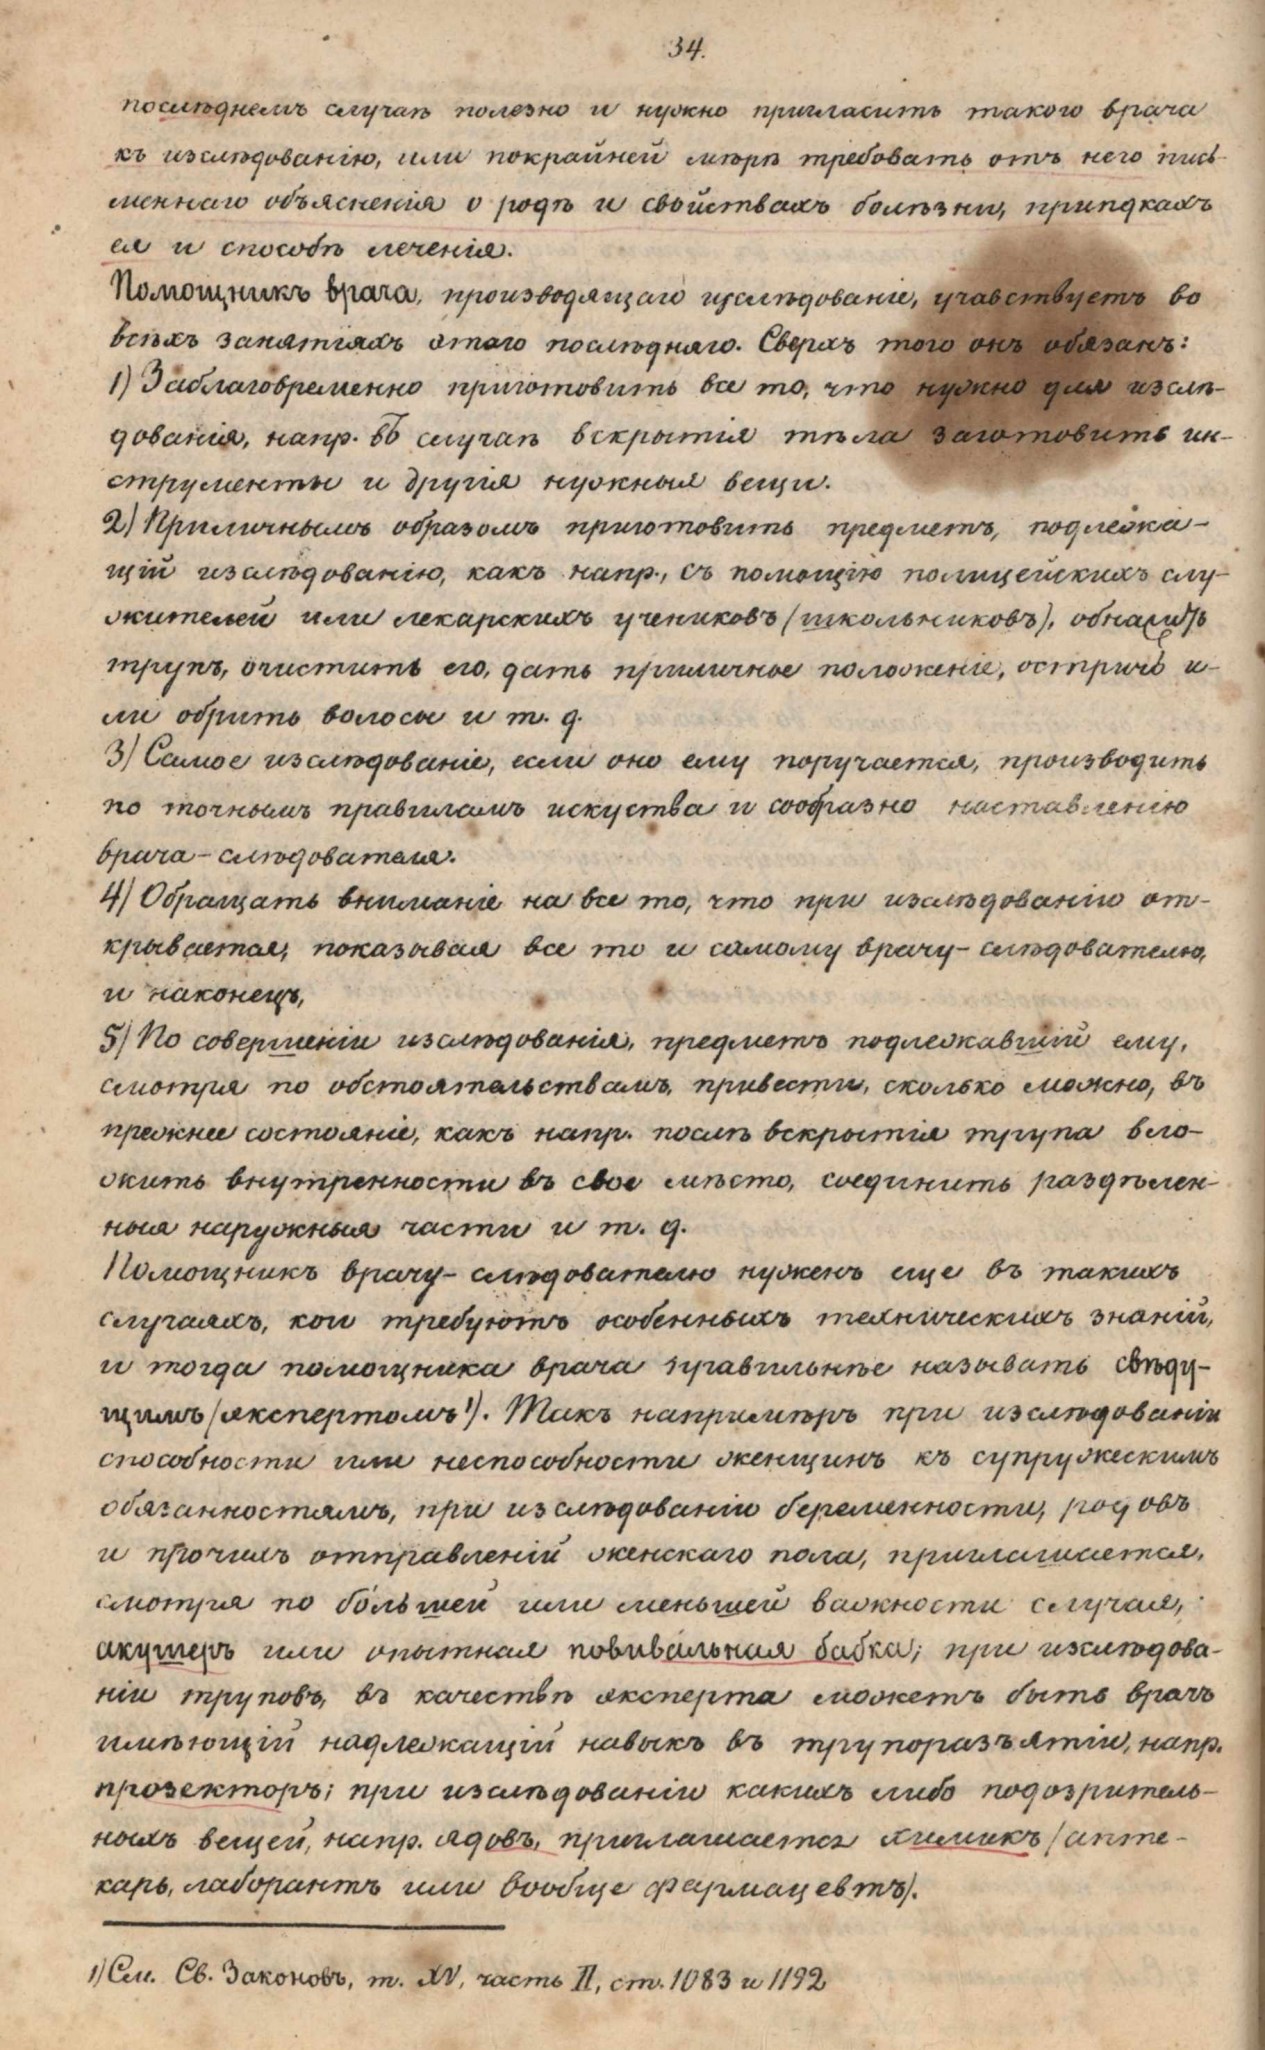 34.
послѣднемъ случаѣ полезно и нужно пригласить такого врача
къ изслѣдованію, или покрайней мѣрѣ требовать отъ него пись-
меннаго объясненія о родѣ и свойствахъ болѣзни, припдкахъ
ея и способѣ леченія.
Помощникъ врача, производящаго изслѣдованіе, учавствуетъ во
всѣхъ занятіяхъ этого послѣдняго. Сверхъ того онъ обязанъ:
1) Заблаговременно приготовить все то, что нужно для изслѣ-
дованія, напр. въ случаѣ вскрытія тѣла заготовить ин-
струменты и другія нужныя вещи.
2) Приличнымъ образомъ приготовить предметъ, подлежа-
щій изслѣдованію, какъ напр., съ помощію полицейскихъ слу-
жителей или лекарскихъ учениковъ (школьниковъ), обнажить
трупъ, очистить его, дать приличное положеніе, остричь и-
ли обрить волосы и т. д.
3) Самое изслѣдованіе, если оно ему поручается, производить
по точнымъ правиламъ искуства и сообразно наставленію
врача-слѣдователя.
4) Обращать вниманіе на все то, что при изслѣдованію от-
крывается, показывая все то и самому врачу-слѣдователю,
и наконецъ,
5) По совершеніи изслѣдованія, предметъ подлежавшій ему,
смотря по обстоятельствамъ, привести, сколько можно, въ
прежнее состояніе, какъ напр. послѣ вскрытія трупа вло-
жить внутренности въ свое мѣсто, соединить раздѣлен-
ныя наружныя части и т. д.
Помощникъ врачу-слѣдователю нуженъ еще въ такихъ
случаяхъ, кои требуютъ особенныхъ техническихъ знаній,
и тогда помощника врача правильнѣе называть свѣду-
щимъ (экспертомъ¹). Такъ напримѣръ при изслѣдованіи
способности или неспособности женщинъ къ супружескимъ
обязанностямъ, при изслѣдованіи беременности, родовъ
и прочихъ отправленій женскаго пола, приглашается,
смотря по бо́льшей или меньшей важности случая,
акушеръ или опытная повивальная бабка; при изслѣдова-
ніи труповъ, въ качествѣ эксперта можетъ быть врачъ
имѣющій надлежащій навыкъ въ трупоразъятіи, напр.
прозекторъ; при изслѣдованіи какихъ либо подозритель-
ныхъ вещей, напр. ядовъ, приглашается химикъ (апте-
карь, лаборантъ или вообще фармацевтъ).
1) См. Св. Законовъ, т. XV, часть II, ст. 1083 и 1192